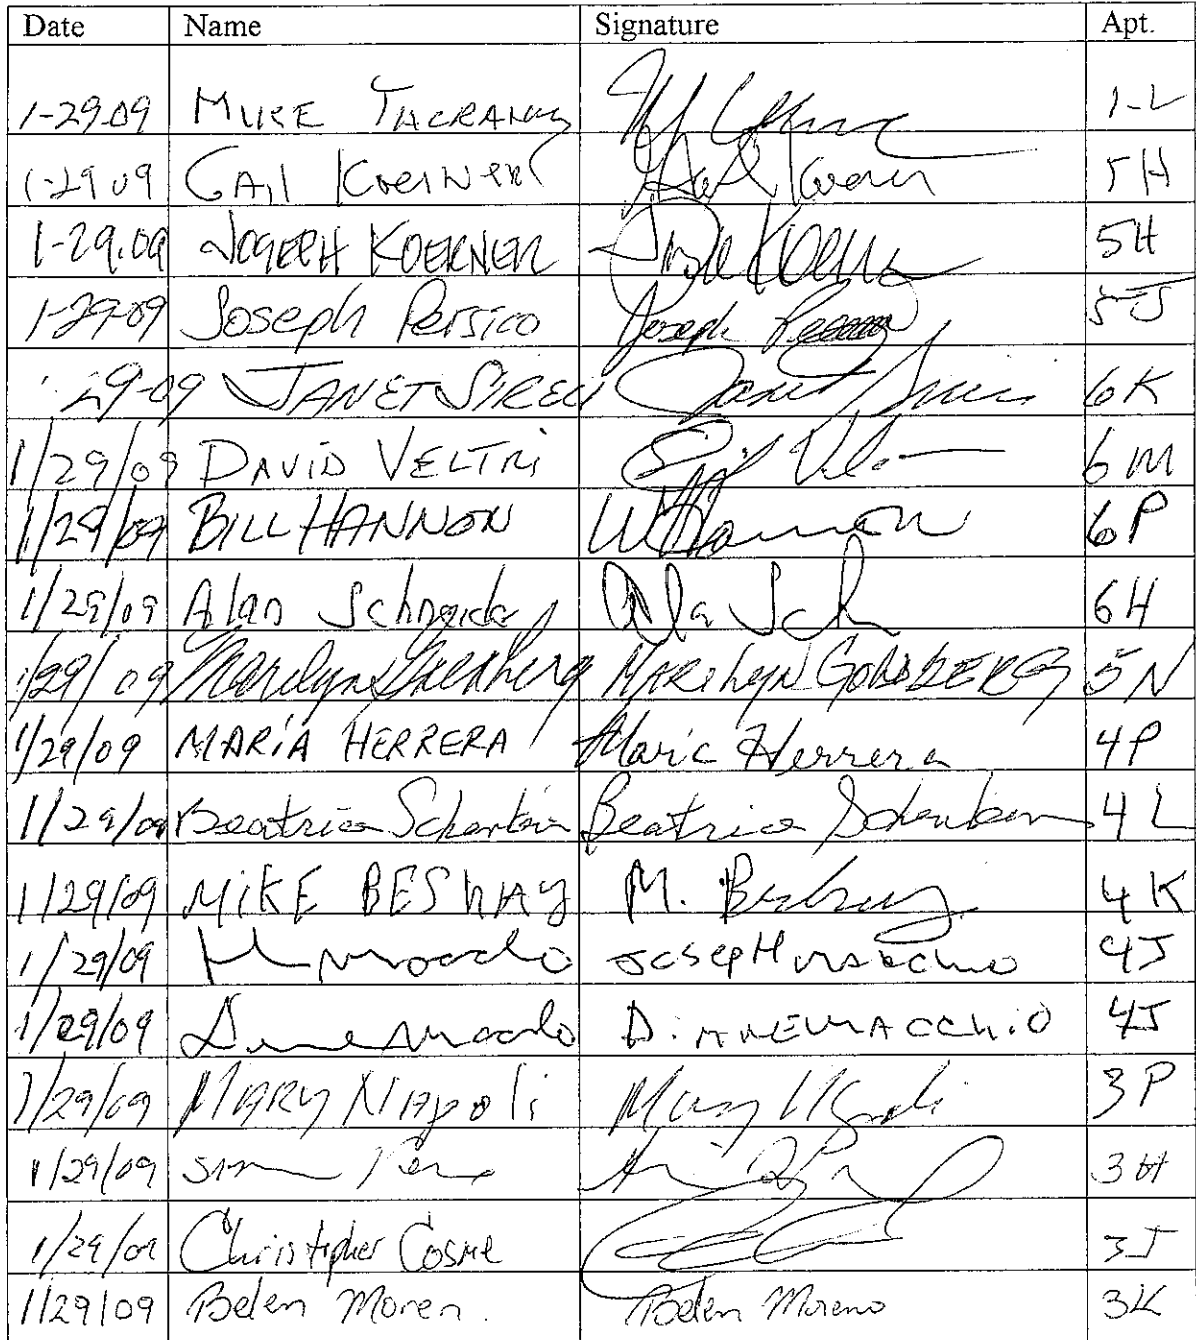 Date Name Signature Apt.
1-29-09 MIKE 1-L
1-29 09 GAIL KOERNER Gail Koerner 5H
1-29.09 JOSEPH KOERNER 5H
1-29-09 Joseph Persico Joseph 5J
29-09 JANET SIRECI Janet Sireci 6K
1/29/09 DAVID VELTRI 6M
1/29/09 BILL HANNON W Hannon 6P
1/29/09 Alan Schneider 6H
1/29/09 Marilyn Goldberg MARILYN GOLDBERG 5N
1/29/09 MARIA HERRERA Maria Herrera 4P
1/29/09 Beatrice Beatrice 4L
1/29/09 MIKE BESHAY M. Beshay 4K
1/29/09 JOSEPH 4J
1/29/09 DIANE MACCHIO 4J
1/29/09 MARY NAPOLI Mary Napoli 3P
1/29/09 3H
1/29/09 Christopher Cosme 3J
1/29/09 Belen Moren. Belen Moreno 3K